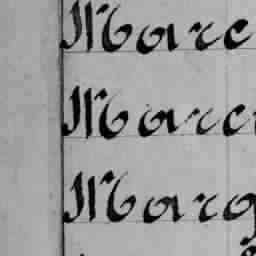 Marce
Marce
Marg